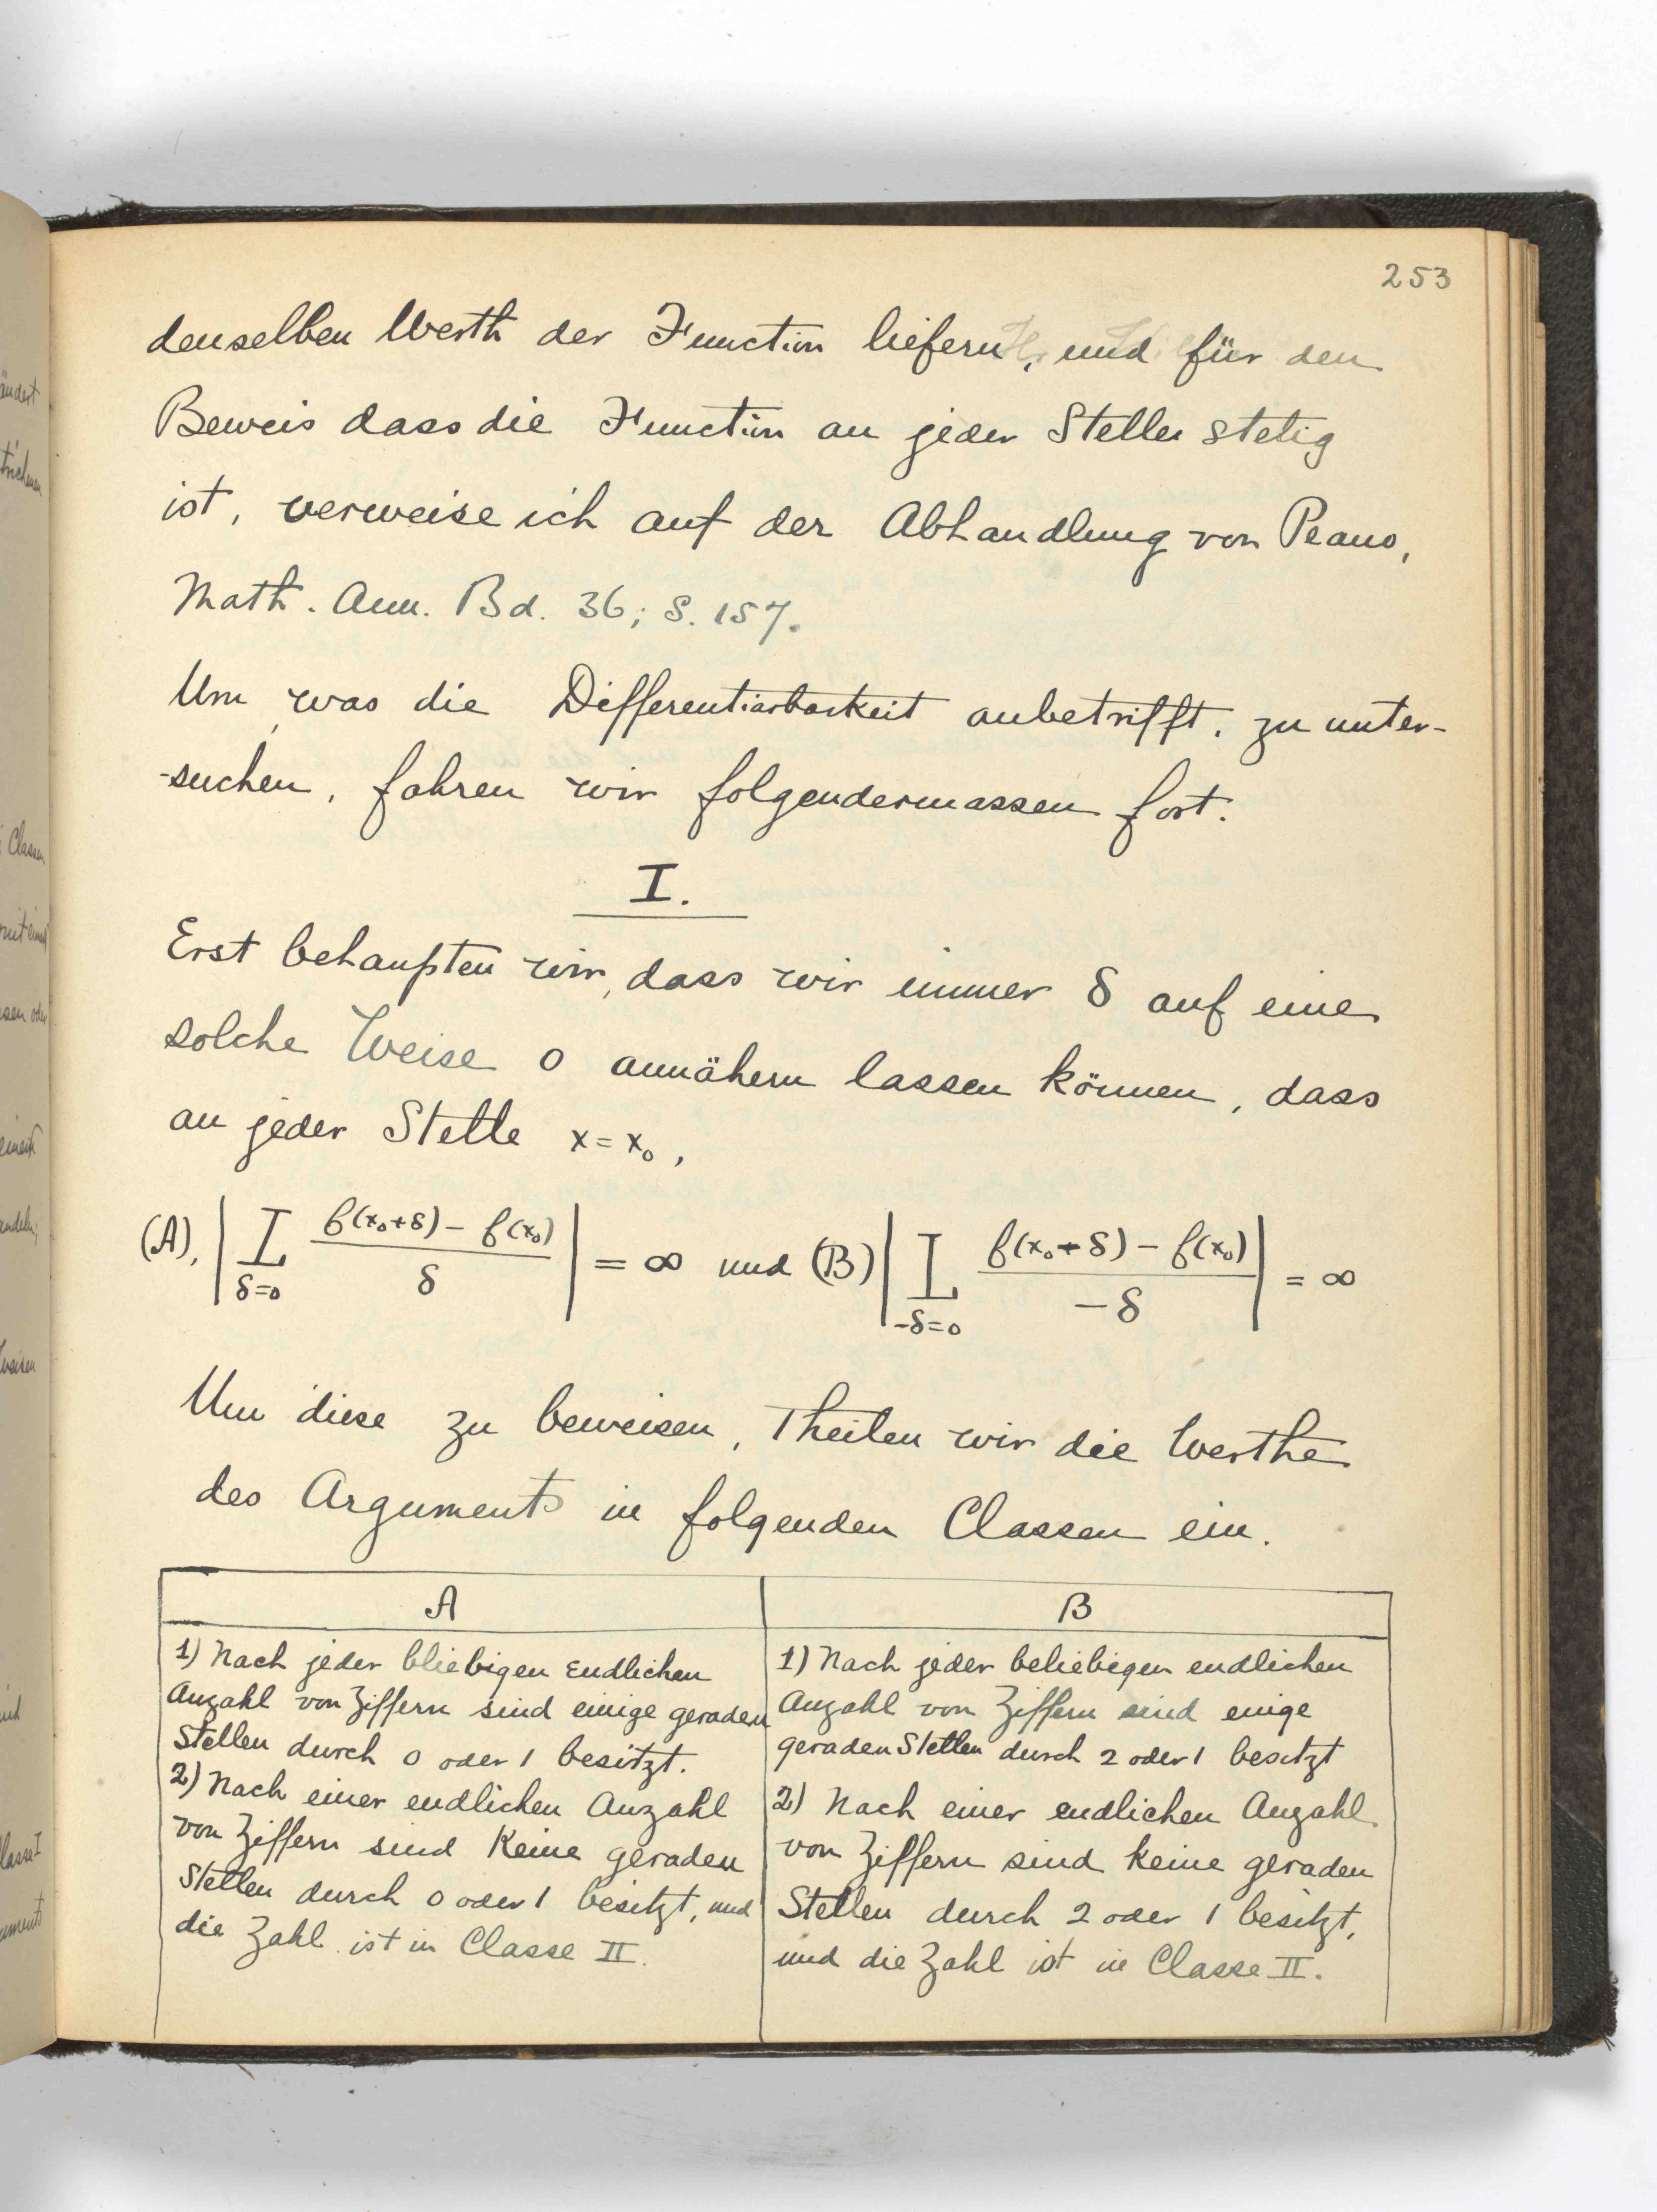 253
denselben Werth der Function liefern, und für den
Beweis dass die Function an jeder Stelle stetig
ist, verweise ich auf der Abhandlung von Peano,
Math. Ann. Bd. 36; S. 157.
Um, was die Differentiarbarkeit anbetrifft, zu unter-
-suchen, fahren wir folgendermassen fort:
I.
Erst behaupten wir, dass wir immer δ auf eine
solche Weise 0 annähern lassen können, dass
an jeder Stelle x = x₀,
(A), | L_{δ=0} (f(x₀+δ) - f(x₀))/δ | = ∞ und (B) | L_{-δ=0} (f(x₀-δ) - f(x₀))/-δ | = ∞
Um diese zu beweisen, Theilen wir die Werthe
des Arguments in folgenden Classen ein.
A
1) Nach jeder bliebigen Endlichen
Anzahl von Ziffern sind einige geraden
Stellen durch 0 oder 1 besitzt.
2) Nach einer endlichen Anzahl
von Ziffern sind Keine geraden
Stellen durch 0 oder 1 besitzt, und
die Zahl ist in Classe II.
B
1) Nach jeder beliebigen endlichen
Anzahl von Ziffern sind einige
geraden Stellen durch 2 oder 1 besitzt
2) Nach einer endlichen Anzahl
von Ziffern sind keine geraden
Stellen durch 2 oder 1 besitzt,
und die Zahl ist in Classe II.